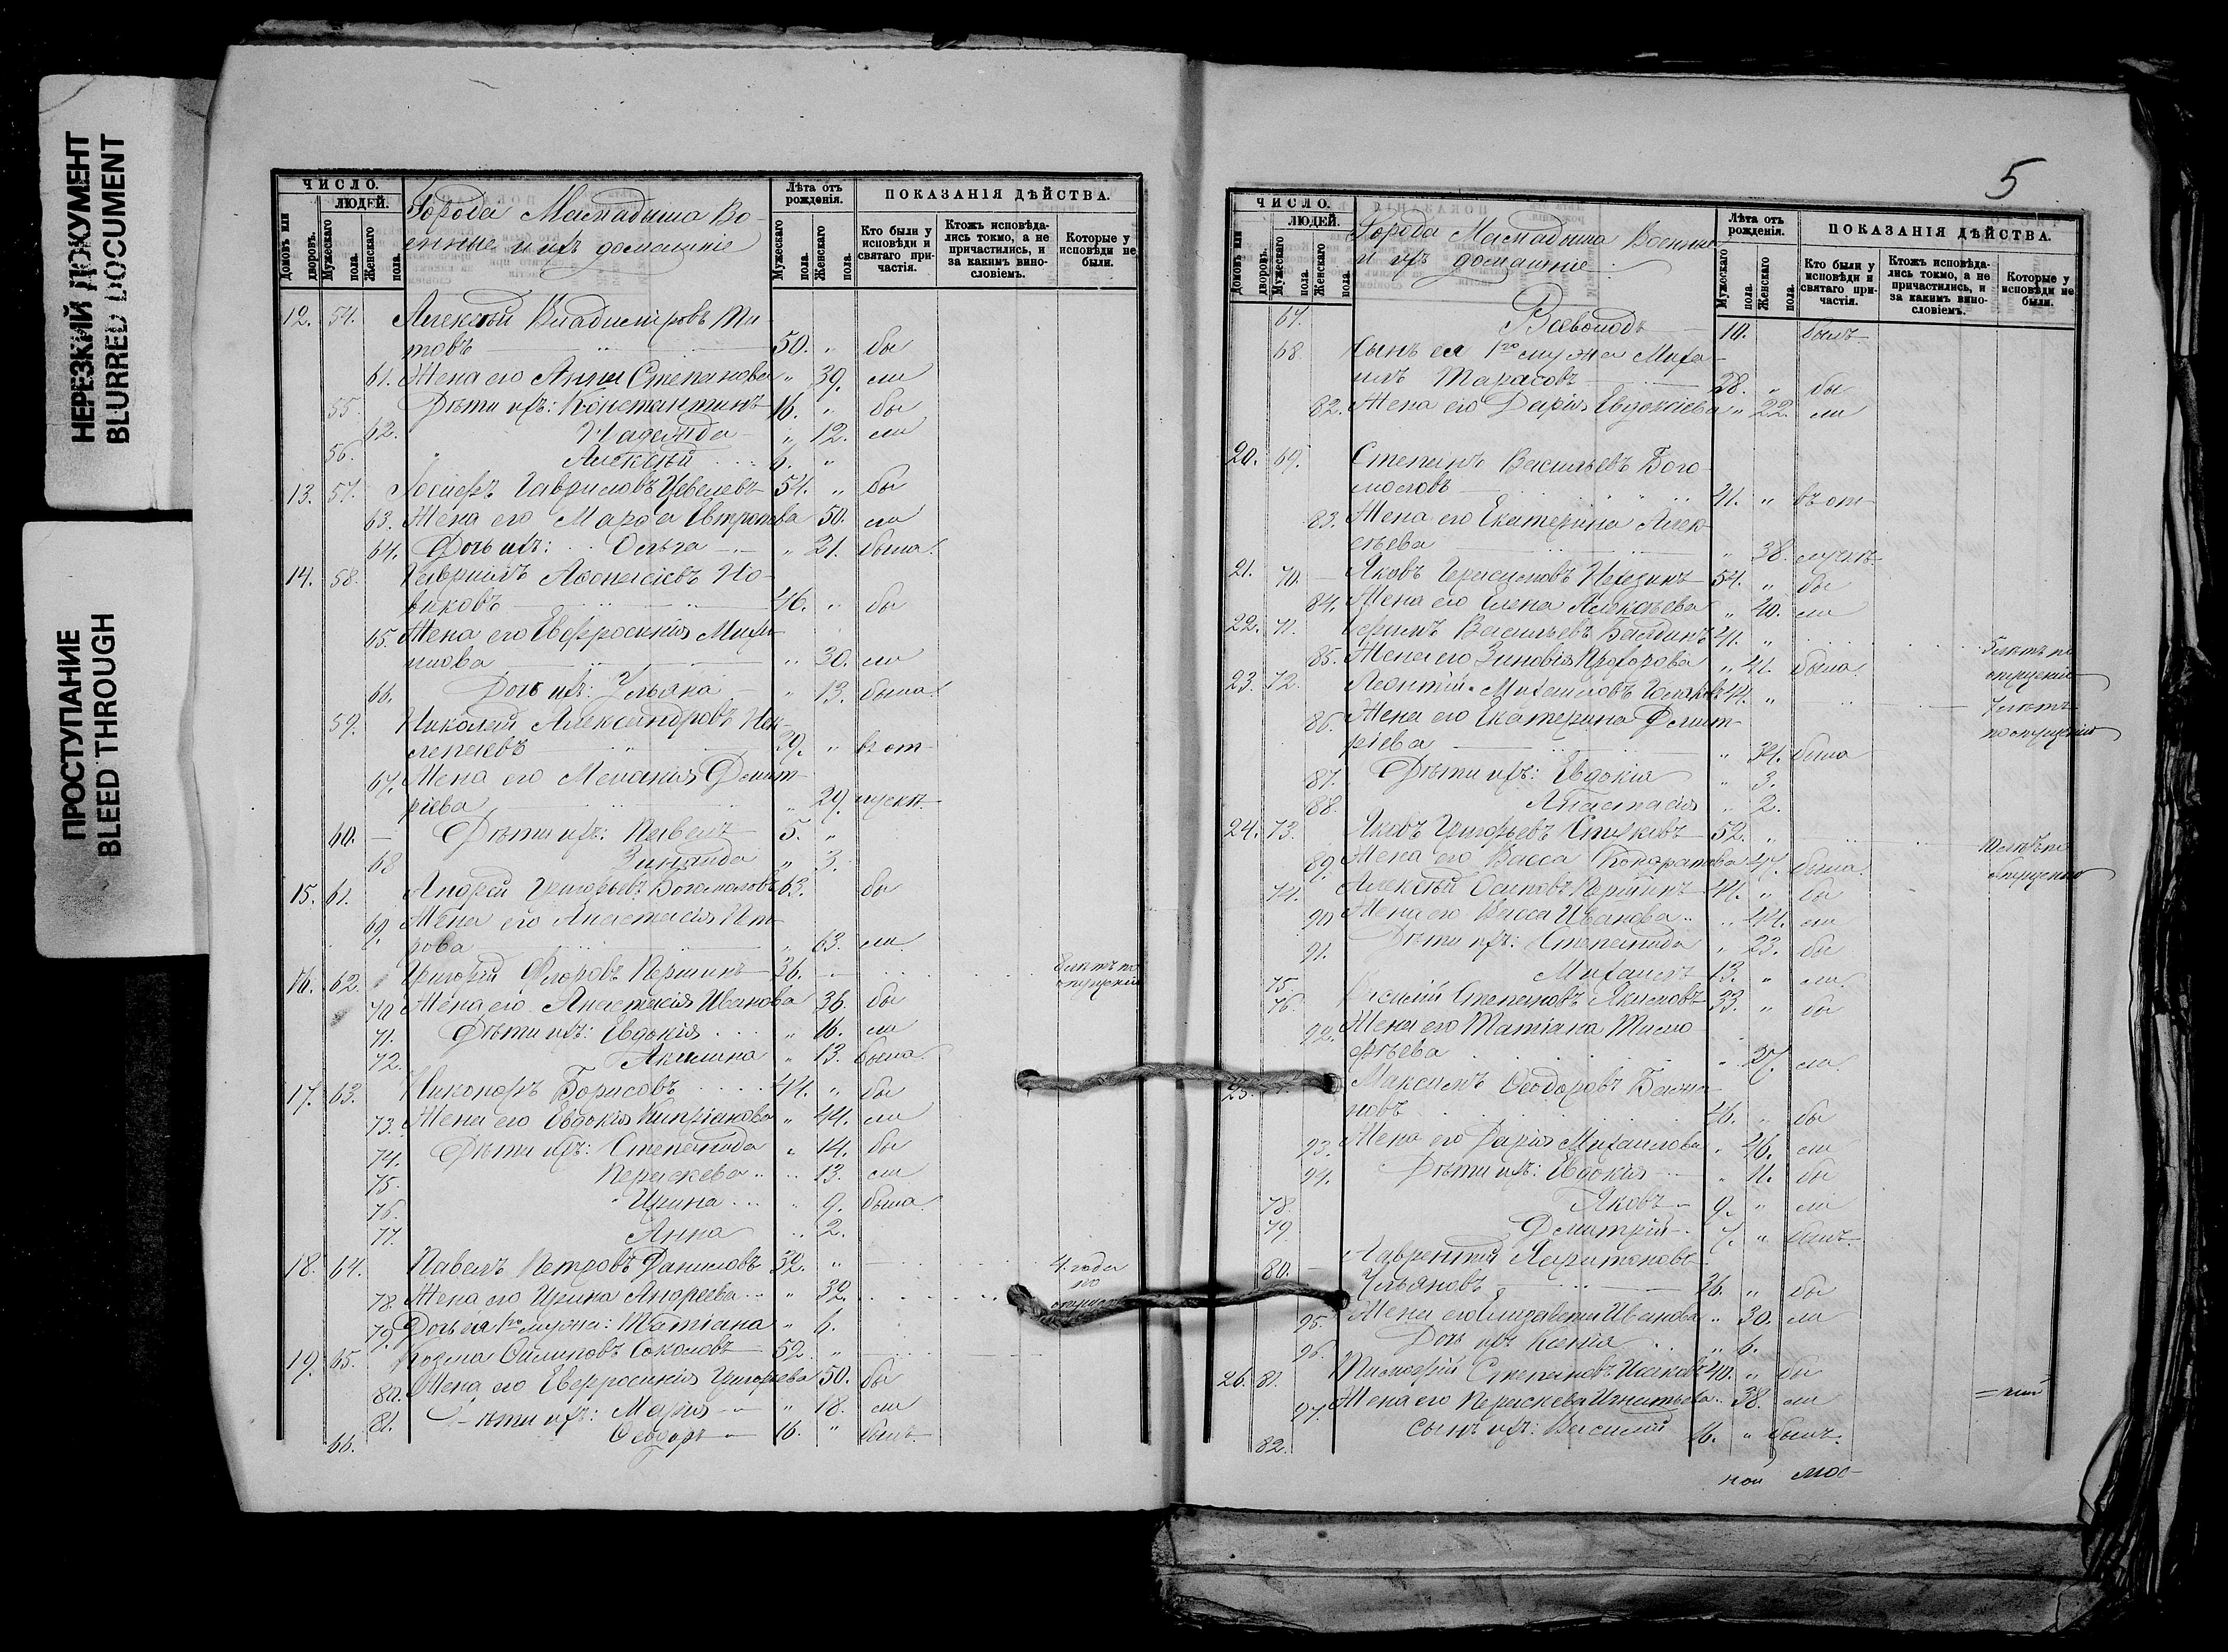 НЕРЕЗКИЙ ДОКУМЕНТ
BLURRED DOCUMENT
ПРОСТУПАНИЕ
BLEED THROUGH
ЧИСЛО.
ЛЮДЕЙ.
Домовъ или дворовъ.
Мужескаго пола.
Женскаго пола.
Города Мамадыша Во-
енные и ихъ домашніе
Лѣта отъ рожденія.
Мужескаго пола.
Женскаго пола.
ПОКАЗАНІЯ ДѢЙСТВА.
Кто были у исповѣди и святаго причастія.
Ктожъ исповѣда-лись токмо, а не причастились, и за какимъ вино-словіемъ.
Которые у исповѣди не были.
12. 54. Алексѣй Владиміровъ Ти-
товъ 50. " бы
61. Жена его Анна Степанова " 39. ли
55. Дѣти ихъ: Константинъ 16. " бы
62. Надежда " 12. ли
56. Алексѣй 6. "
13. 57. Іосифъ Гавриловъ 54. " бы
63. Жена его Марфа Евтропова 50. ли
64. Дочь ихъ: Ольга " 21. была.
14. 58. Гавріилъ Аѳонасіевъ Но-
виковъ 46. " бы
65. Жена его Евфросинія Михаи-
лова " 30. ли
66. Дочь ихъ: Ульяна " 13. была.
59. Николай Александровъ
29. " въ от-
67. Жена его Меланія Димит-
ріева " 29. лускѣ
60. Дѣти ихъ: Павелъ 5. "
68 Зинаида " 3.
15. 61. Андрей Григорьевъ Богомоловъ 63. бы
69. Жена его Анастасія Пет-
рова " 63. ли
16. 62. Григорій Ѳедоровъ Першинъ 36. 8 лѣтъ по опущенію
70 Жена его Анастасія Иванова 36 бы
71. Дѣти ихъ: Евдокія " 16. ли
72. Акилина " 13. была.
17. 63. Никаноръ Борисовъ 44. " бы
73. Жена его Евдокія Кипріанова " 44. ли
74. Дѣти ихъ: Степанида " 14. бы
75. Параскева 13. ли
76. Ирина " 9. была.
77. Анна 2.
18. 64. Павелъ Петровъ Даниловъ 32. " 4 года по
78. Жена его Ирина Андреева " 32.
79. Дочь ея 1го мужа: Татіана " 6.
19. 65. Козма Филиповъ Соколовъ 52. "
80. Жена его Евфросинія Григорьева 50. бы
81. Дѣти ихъ: Марія " 18. ли
66. Ѳеодоръ 16. " былъ
5
ЧИСЛО.
ЛЮДЕЙ.
Домовъ или дворовъ.
Мужескаго пола.
Женскаго пола.
Города Мамадыша Военные
и ихъ домашніе
Лѣта отъ рожденія.
Мужескаго пола.
Женскаго пола.
ПОКАЗАНІЯ ДѢЙСТВА.
Кто были у исповѣди и святаго при-частія.
Ктожъ исповѣда-лись токмо, а не причастились, и за какимъ вино-словіемъ.
Которые у исповѣди не были.
67. Всеволодъ 10. былъ
68. Сынъ ея 1го мужа Миха-
илъ Тарасовъ 28. " бы
82. Жена его Дарія Евдокіева " 22. ли
20. 69. Степанъ Васильевъ Бого-
моловъ 41. " въ от-
83. Жена его Екатерина Алек-
сѣева " 38. лускѣ
21. 70. Яковъ Герасимовъ 54. " бы
84. Жена его Елена Алексѣева " 40. ли
22. 71. Васильевъ 41. " 5 лѣтъ по опущенію
85. Жена его Зиновія Прохорова " 41. была
23. 72. Леонтій Михаиловъ 44. " 7 лѣтъ по опущенію
86. Жена его Екатерина Димит-
ріева " 34. была
87. Дѣти ихъ: Евдокія " 3.
88. Анастасія " 2.
24. 73. Яковъ Григорьевъ 52. " 10 лѣтъ опущенію
89. Жена его Васса Кондратова 47. была.
74. Алексѣй Осиповъ Першинъ 44. " бы
90. Жена его Васса Иванова " 44. ли
91. Дѣти ихъ: Степанида " 23. бы
75 Михаилъ 13. " ли.
76. Василій Степановъ Якимовъ 33. " бы
92. Жена его Татіана Тимо-
фѣева " 27. ли.
25. Максимъ Ѳеодоровъ
новъ 46. " бы
93. Жена его Дарія Михаилова " 46. ли
94. Дѣти ихъ: Евдокія " 11. бы
78. Яковъ 9. " ли
79 Димитрій 7. " былъ.
80. Лаврентій Харитоновъ
Ульяновъ 36. " бы
95. Жена его Елизавета Иванова " 30. ли
96. Дочь ихъ Ксенія " 6.
26. 81. Тимофей Степановъ Исаковъ 40. " бы
97. Жена его Параскева Игнатьева 38. ли
82. Сынъ ихъ: Василій 16. " былъ.